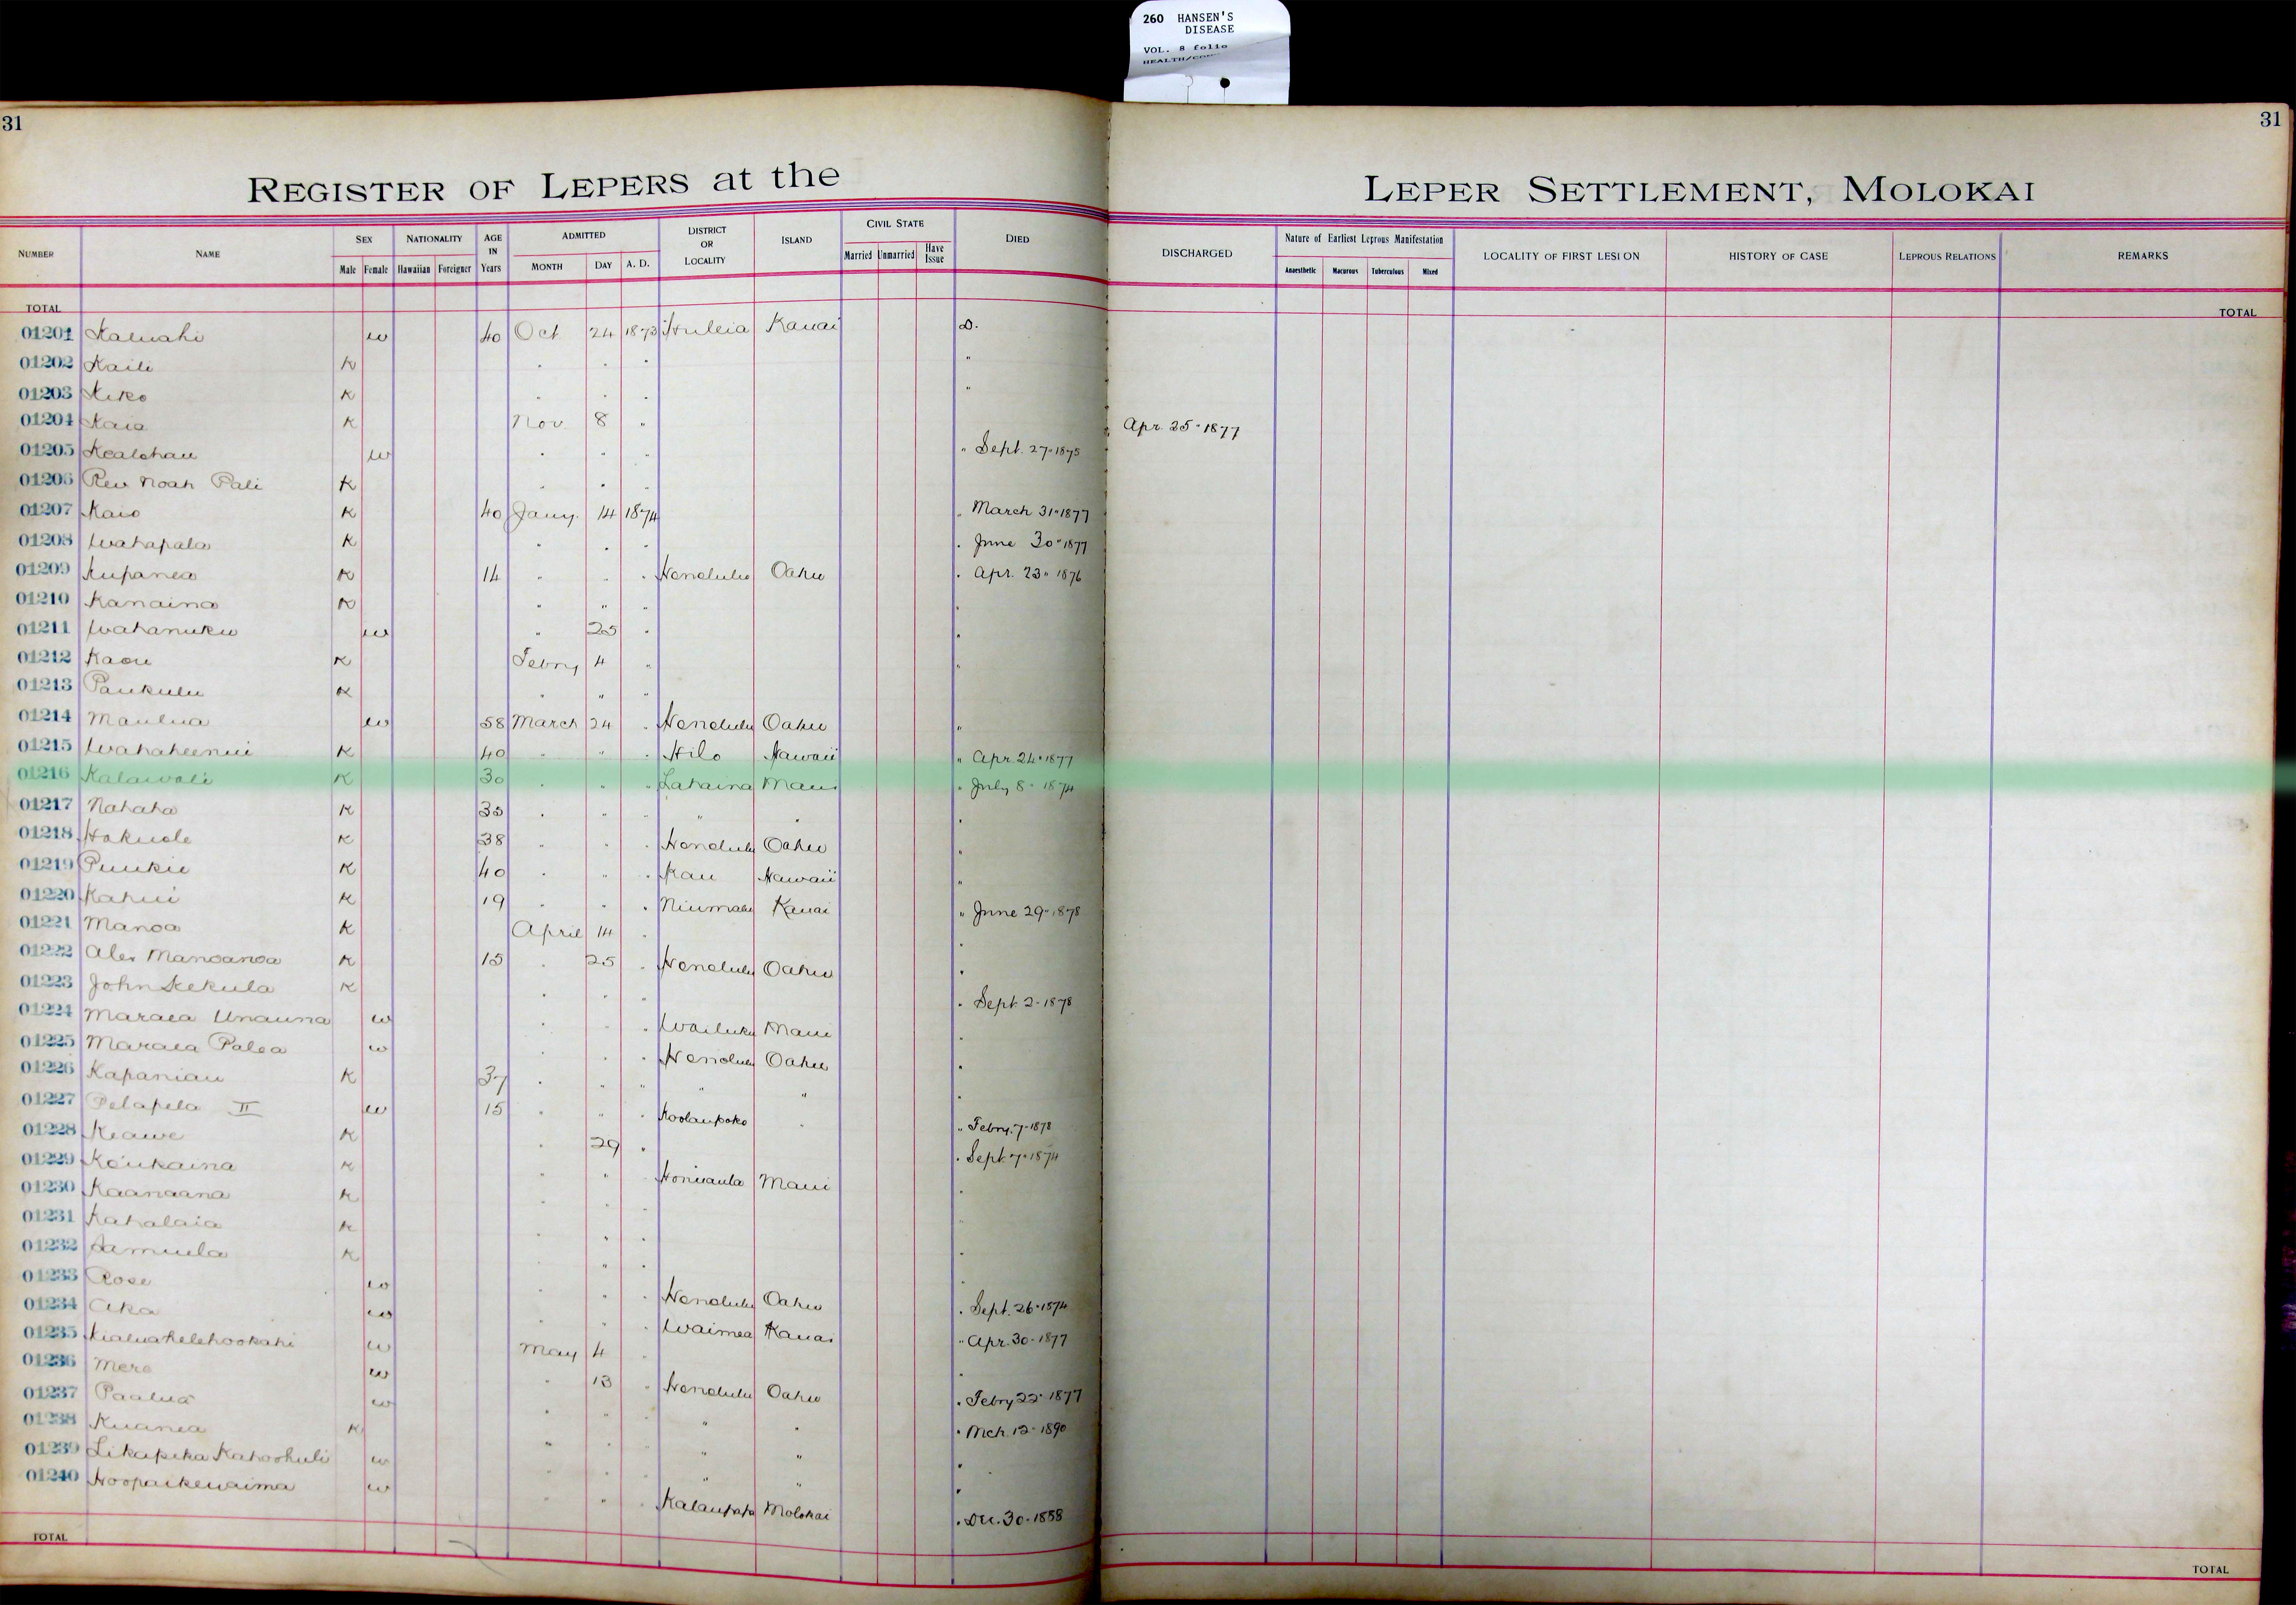 260 HANSEN'S
DISEASE
VOL. 8 folio
31
31
REGISTER OF LEPERS at the
LEPER SETTLEMENT, MOLOKAI
NUMBER NAME SEX Male Female NATIONALITY Hawaiian Foreigner AGE IN Years ADMITTED MONTH DAY A. D. DISTRICT OR LOCALITY ISLAND CIVIL STATE Married Unmarried Have Issue DIED DISCHARGED Nature of Earliest Leprous Manifestation Anaesthetic Macurous Tuberculous Mixed LOCALITY OF FIRST LESION HISTORY OF CASE LEPROUS RELATIONS REMARKS
TOTAL TOTAL
01201 Kaluahi w 40 Oct 24 1873 Huleia Kauai D.
01202 Kaili K " " " "
01203 Kiko K " " " "
01204 Kaia K Nov. 8 " " Apr. 25" 1877
01205 Kealohau w " " " " Sept. 27" 1875
01206 Rev Noah Pali K " " "
01207 Kaio K 40 Jany. 14 1874 " March 31" 1877
01208 Wahapala K " " " " June 30" 1877
01209 Kupanea K 14 " " " Honolulu Oahu " Apr. 23" 1876
01210 Kanaina K " " " "
01211 Wahanuku w " 25 " "
01212 Kaou K Febry 4 " "
01213 Paukulu K " " "
01214 Maulua w 58 March 24 " Honolulu Oahu "
01215 Wahaheenui K 40 " " " Hilo Hawaii " Apr. 24" 1877
01216 Kalawali K 30 " " " Lahaina Maui " July 8" 1874
01217 Nahaha K 35 " " " " " "
01218 Hakuole K 38 " " " Honolulu Oahu "
01219 Puukii K 40 " " " Kau Hawaii "
01220 Kahui K 19 " " " Niumalu Kauai " June 29" 1878
01221 Manoa K April 14 " "
01222 Alex Manoanoa K 15 " 25 " Honolulu Oahu "
01223 John Kekula K " " " " Sept. 2" 1878
01224 Maraea Unauna w " " " Wailuku Maui "
01225 Maraea Palea w " " " Honolulu Oahu "
01226 Kapaniau K 37 " " " " " "
01227 Pelapela II w 15 " " " Koolaupoko " " Febry. 7" 1878
01228 Keawe K " 29 " " Sept. 7" 1874
01229 Koukaina K " " " Honuaula Maui "
01230 Kaanaana K " " "
01231 Kahalaia K " " "
01232 Samuela K " " "
01233 Rose w " " " Honolulu Oahu " Sept. 26" 1874
01234 Aka w " " " Waimea Kauai " Apr. 30" 1877
01235 Kialuahelehookahi w May 4 " "
01236 Mere w " 13 " Honolulu Oahu " Febry 22" 1877
01237 Paalua w " " " " " " Mch. 12" 1890
01238 Kuanea K " " " " " "
01239 Likapeka Kahoohuli w " " " " " "
01240 Hoopaikewaima w " " " Kalaupapa Molokai " Dec. 30" 1888
TOTAL TOTAL